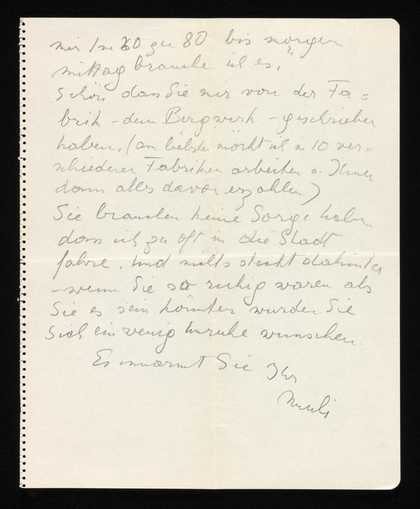 mir 1m 80 zu 80 bis morgen
mittag brauche ich es.
Schön dass Sie mir von der Fa=
brik - dem Bergwerk - geschrieben
haben. (am liebsten möcht ich in 10 ver=
schiedenen Fabriken arbeiten u. Ihnen
dann alles davon erzählen)
Sie brauchen keine Sorge haben
dass ich zu oft in die Stadt
fahre. Und nichts steckt dahinter
- wenn Sie so ruhig waren als
Sie es sein könnten wurden Sie
Sich ein wenig Unruhe wunschen.
Es umarmt Sie Ihr